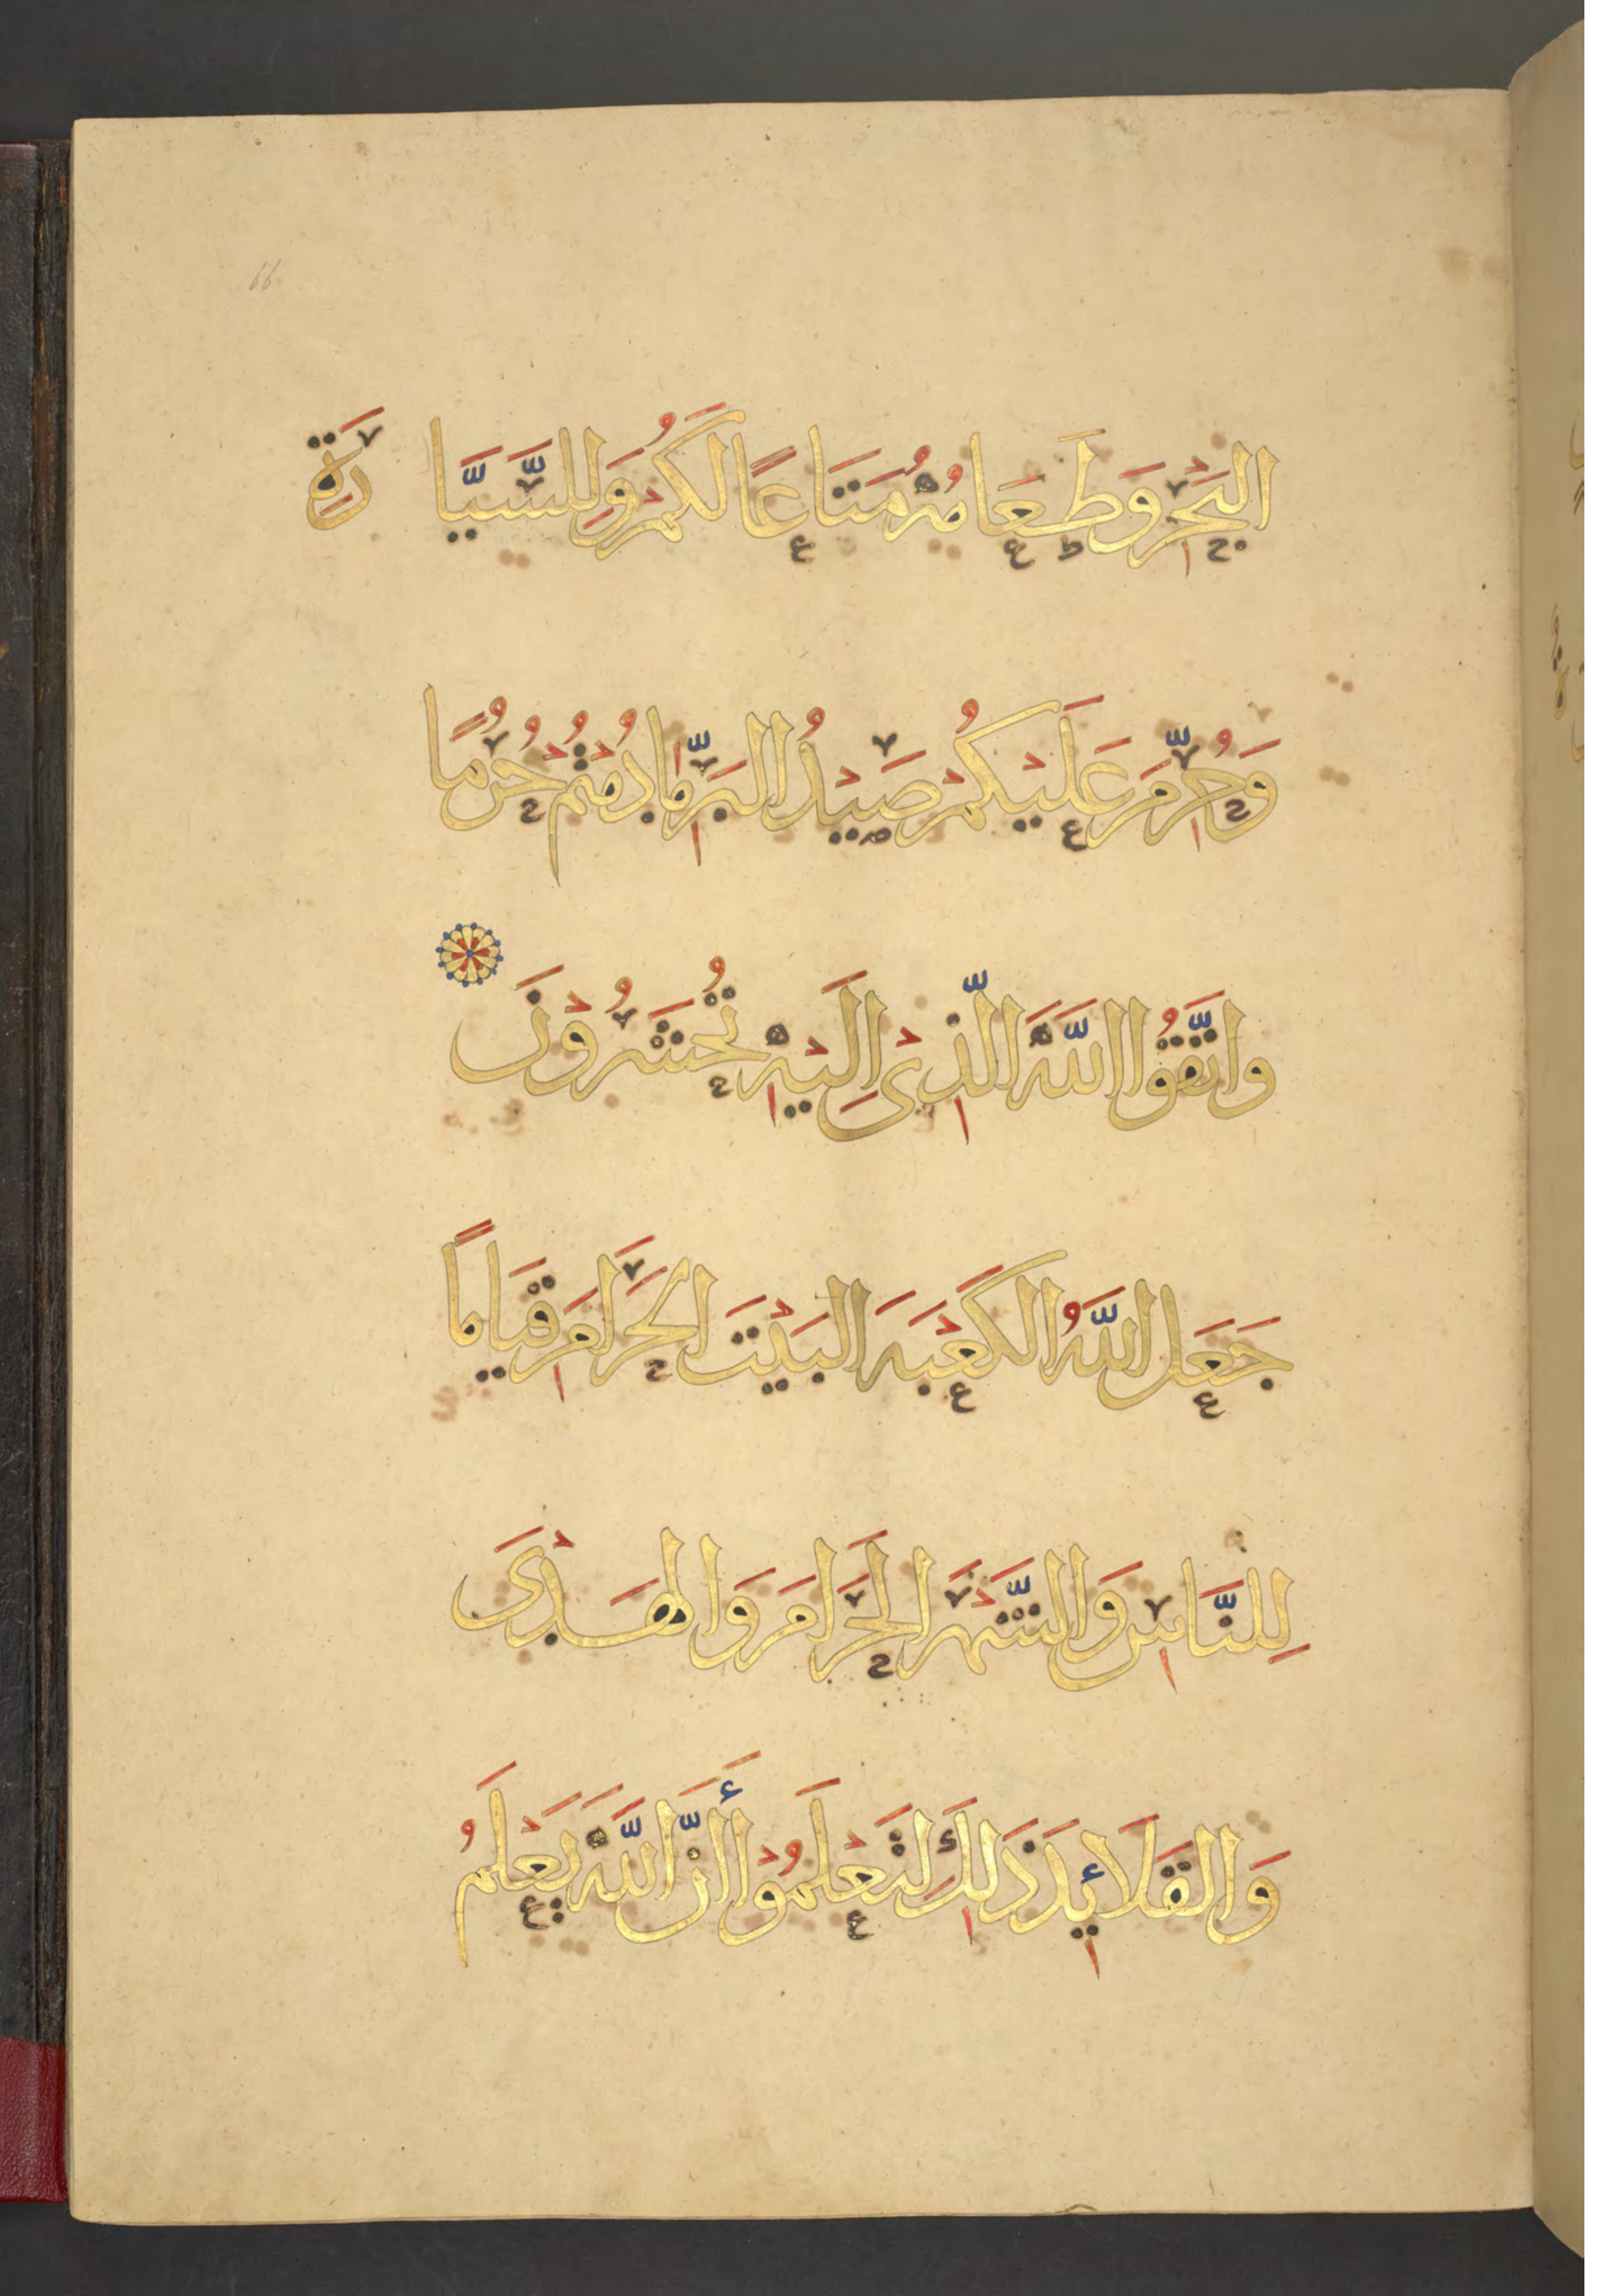 66
البَحْرِ وَطَعَامُهُ مَتَاعًا لَكُمْ وَلِلسَّيَّارَةِ
وَحُرِّمَ عَلَيْكُمْ صَيْدُ البَرِّ مَا دُمْتُمْ حُرُمًا
وَاتَّقُوا اللَّهَ الَّذِيْ إِلَيْهِ تُحْشَرُوْنَ
جَعَلَ اللَّهُ الكَعْبَةَ البَيْتَ الحَرَامَ قِيَامًا
لِلنَّاسِ وَالشَّهْرَ الحَرَامَ وَالهَدْيَ
وَالقَلَائِدَ ذَلِكَ لِتَعْلَمُوْا أَنَّ اللَّهَ يَعْلَمُ